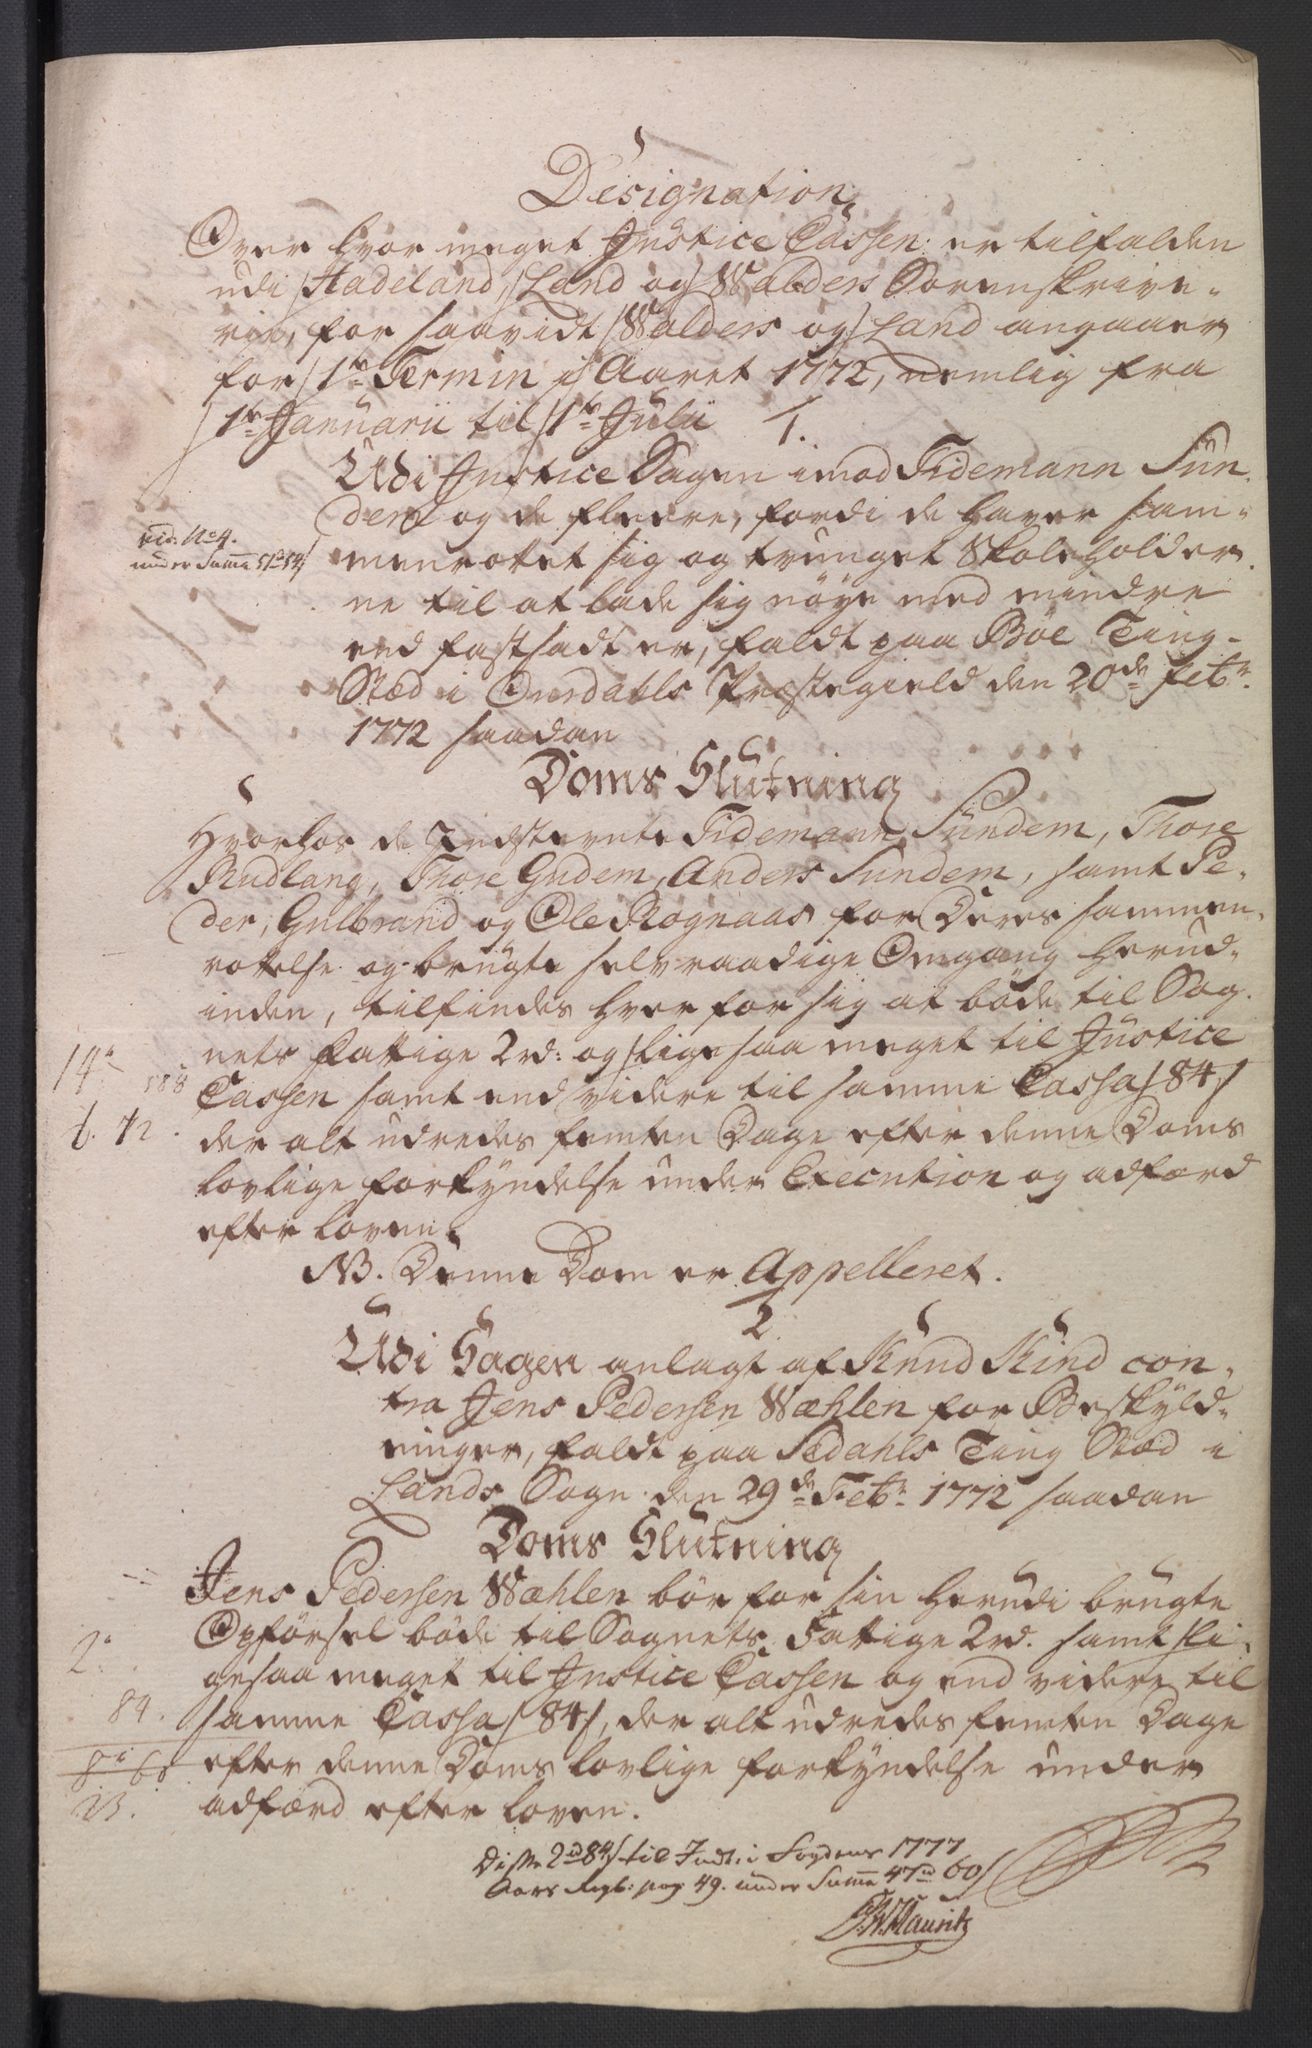 Designation
Over hvor meget Justice Cassen er tilfalden
udi Hadeland, Land og Walders Sorenskrive-
rie, for saavidt Walders og Land angaaer
for 1te Termin i Aaret 1772, nemlig fra
1te Januarii til 1te Julii
1.
Udi Justice Sagen imod Tidemann Sün-
dem og de fleere, fordi de haver sam-
vid: No 4.
menrottet sig og tvunget Skoleholder-
under Summa
ne til at lade sig nøye med mindre
end fastsadt er, faldt paa Böe Ting-
Stæd i Ourdahls Præstegield den 20de Febr.
1772 saadan
Doms Slutning
Hvorfor de Indstevnte Tidemann Sündem, Thore
Rudlang, Thore Gudem, Anders Sundem, samt Pe-
der, Gulbrand og Ole Rognaas for Deres sammen-
rottelse og brugte selvraadige Omgang herud-
inden, tilfindes hver for sig at böde til Sog-
nets fattige 2 rd: og lige saa meget til Justice
14
Cassen samt end videre til samme Cassa 84 s
6. 12.
der alt udredes femten Dage efter denne Doms
lovlige forkyndelse under Execution og adfærd
efter loven.
NB. Denne Dom er Appelleret.
2
Udi Sagen anlagt af Knud Kind con-
tra Jens Pedersen Wæhlen for Beskyld-
ninger, faldt paa Sedahls Ting Stæd i
Lands Sogn den 29de Febr. 1772 saadan
Doms Slutning
Jens Pedersen Wæhlen bör for sin herudi brugte
Opförsel böde til Sognets Fattige 2 rd. samt li-
2
gesaa meget til Justice Cassen og end videre til
84.
samme Cassa 84 s, der alt udredes femten Dage
efter denne Doms lovlige forkyndelse under
adfærd efter loven.
Disse 2 rd 84 s til Indt. i Fogdens 1777
Aars Regl: pag 49. under Summa 47 rd 60 s
Mauritz